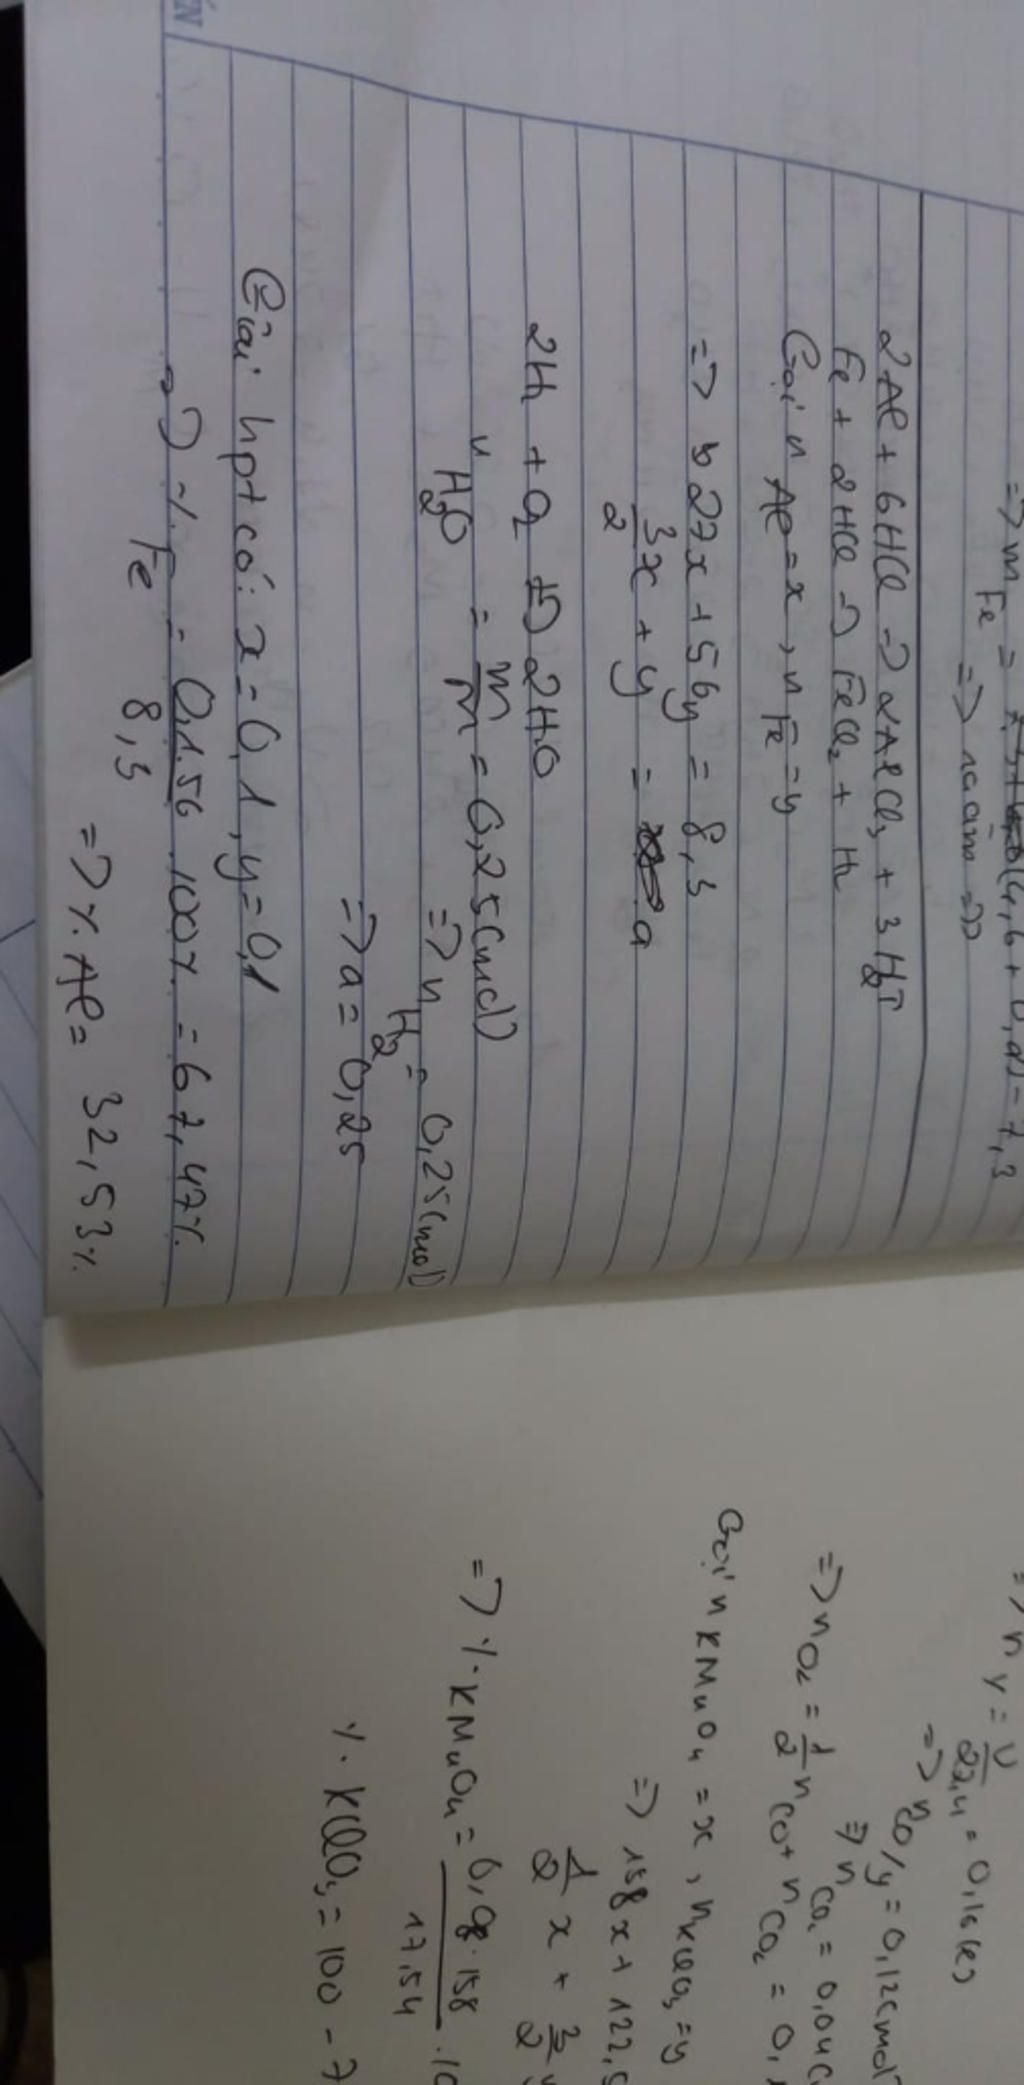 => m Fe =
=> 
2Al + 6HCl -> 2AlCl3 + 3H2↑
Fe + 2HCl -> FeCl2 + H2
Gọi n Al = x, n Fe = y
=> 27x + 56y = 8,3
3/2 x + y = a
2H2 + O2 -> 2H2O
n H2O = m/M = 0,25(mol)
=> n H2 = 0,25(mol)
=> a = 0,25
Giải hpt có: x = 0,1, y = 0,1
=> % Fe = 0,1.56/8,3 .100% = 67,47%
=> % Al = 32,53%
=> n y = V/22,4 = 0,16(
=> n CO/y = 0,12(mol)
=> n CO2 = 0,04(
=> n O2 = 1/2 n CO + n CO2 = 0,
Gọi n KMnO4 = x, n KClO3 = y
=> 158x + 122,5
1/2 x + 3/2 y
=> % KMnO4 = 0,08.158/17,54 .10
% KClO3 = 100 - 7